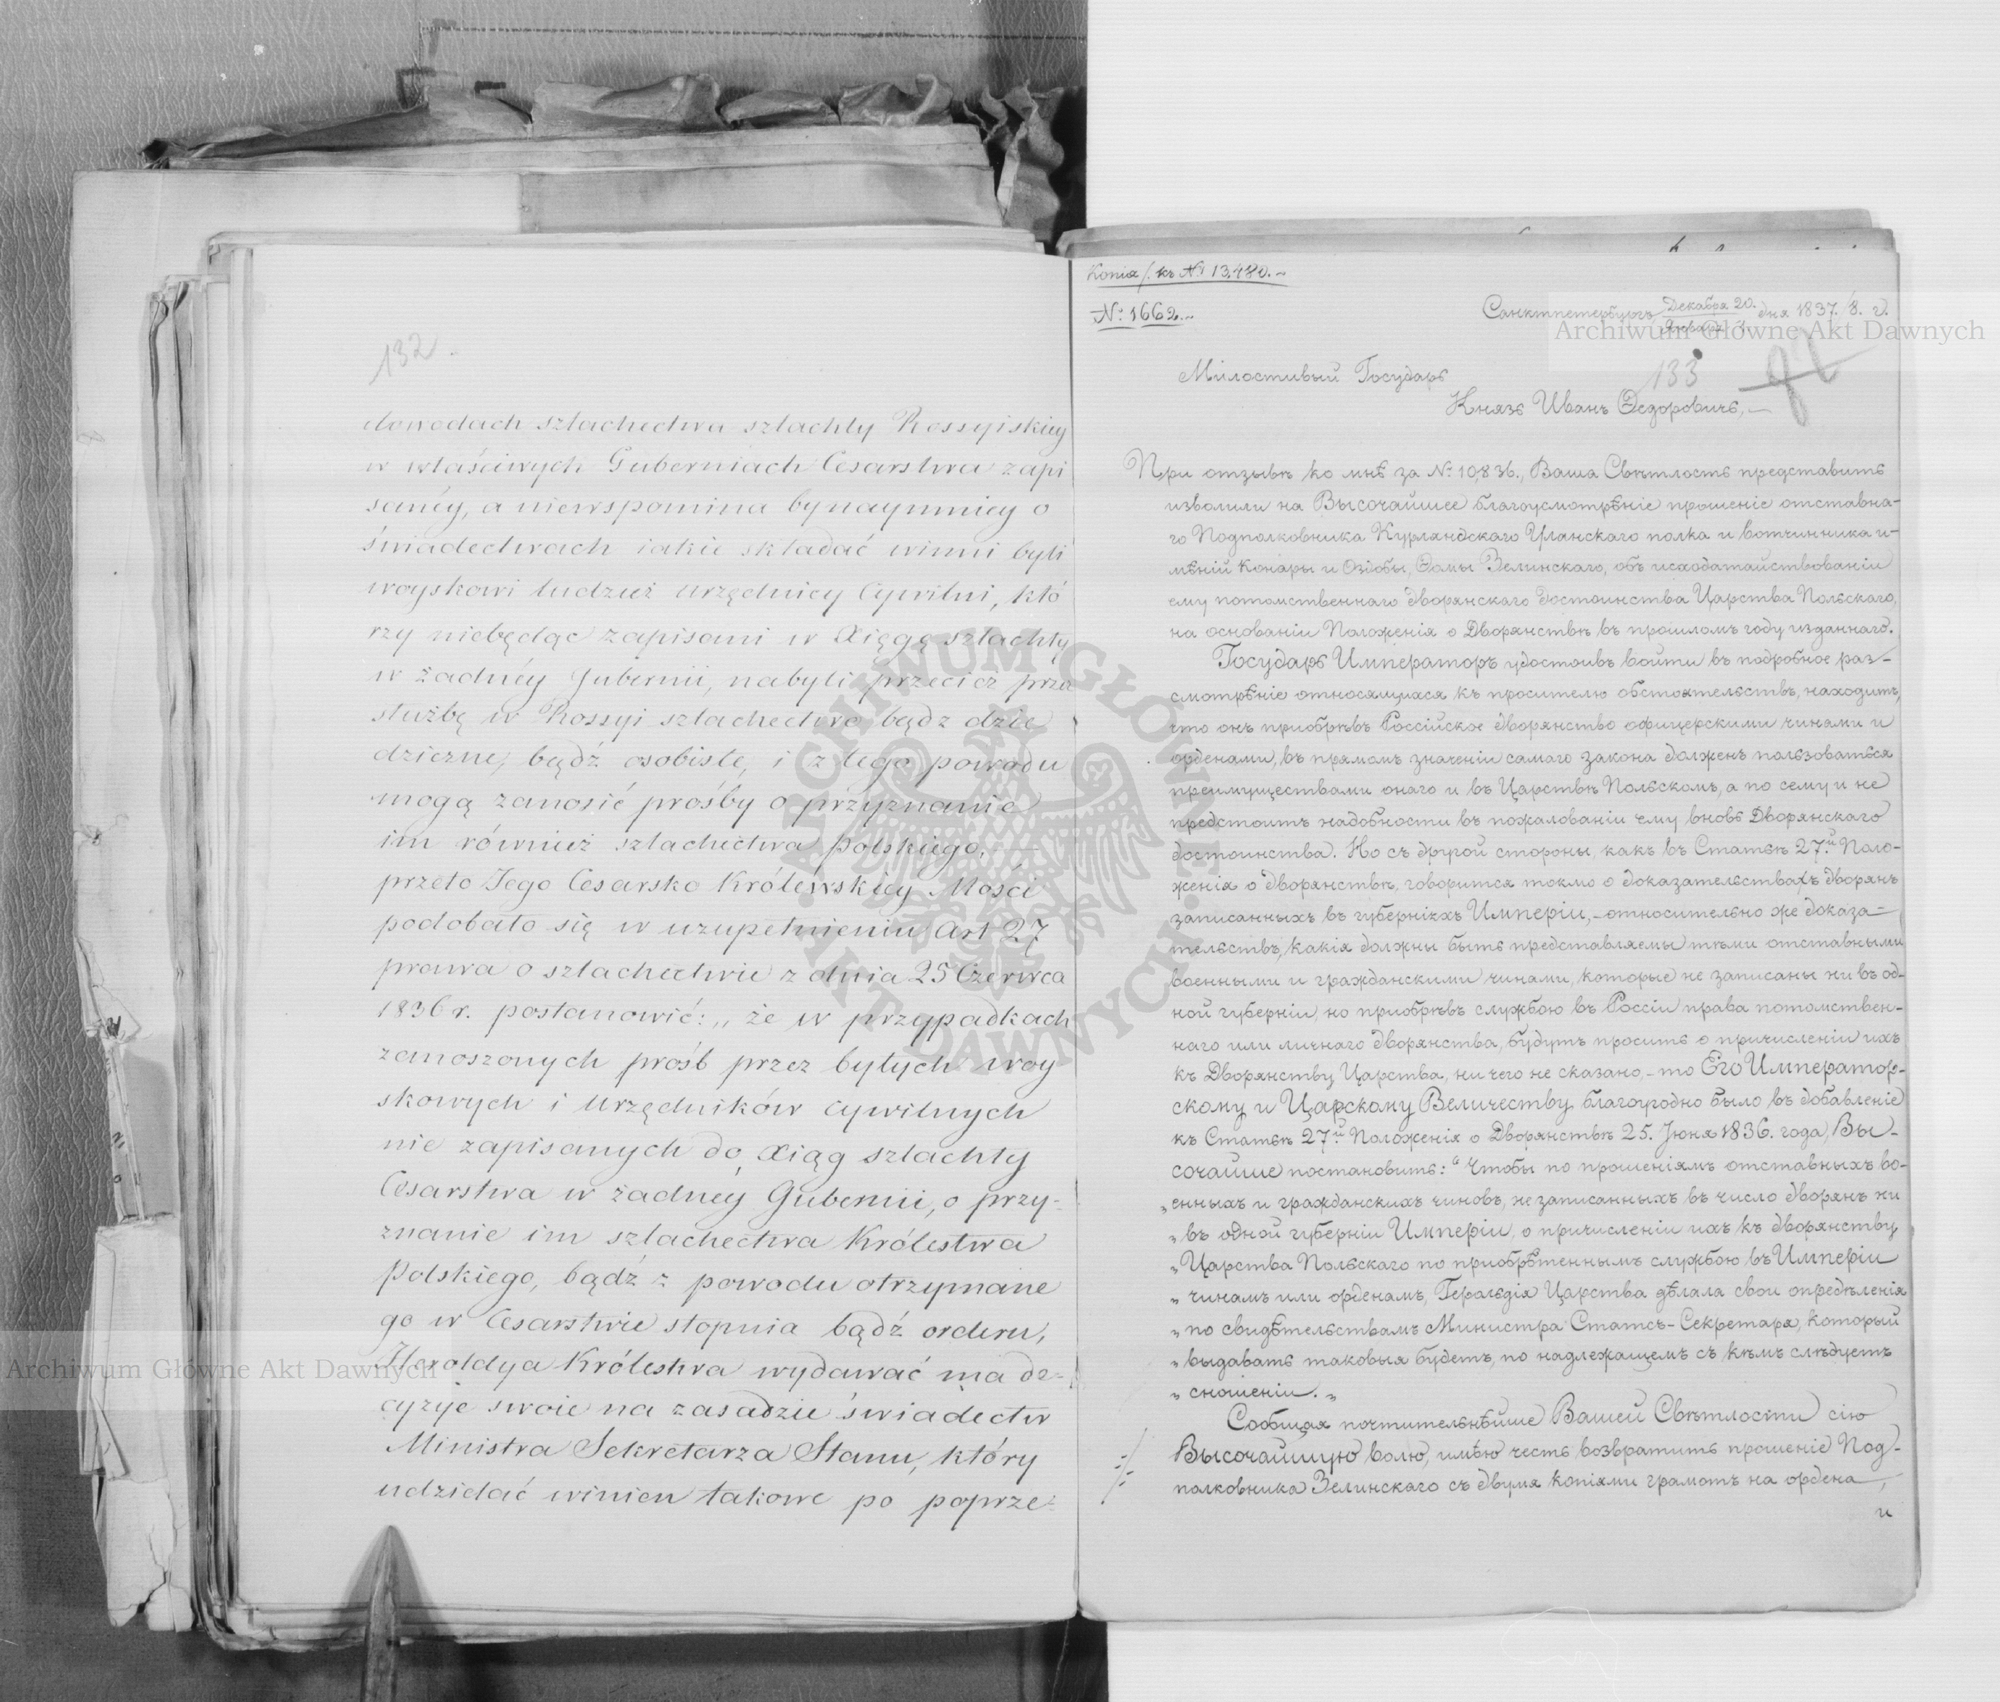 132.
dowodach szlachectwa szlachty Rossyiskiey
w właściwych Guberniach Cesarstwa zapi
sanéy, a niewspomina bynaymniey o
świadectwach iakie składać winni byli
woyskowi tudzież urzędnicy Cywilni, któ
rzy niebędąc zapisani w Xięgę szlachty
w żadnéy Gubernii, nabyli przecież przez
służbę w Rossyi szlachectwo bądź dzie
dziczne, bądź osobiste, i z tego powodu
mogą zanosić prośby o przyznanie
im również szlachectwa polskiego, —
przeto Jego Cesarsko Królewskiey Mości
podobało się w uzupełnieniu Art 27
prawa o szlachectwie z dnia 25 Czerwca
1836 r. postanowić: „ że w przypadkach
zanoszonych próśb przez byłych woy
skowych i urzędników cywilnych
nie zapisanych do Xiąg szlachty
Cesarstwa w żadnéy Gubernii, o przy-
znanie im szlachectwa Królestwa
Polskiego, bądź z powodu otrzymane
go w Cesarstwie stopnia bądź orderu,
Heroldya Królestwa wydawać ma de=
cyzje swoie na zasadzie świadectw
Ministra Sekretarza Stanu, który
udzielać winien takowe po poprze=
Копія /. къ № 13,480.
№ 1662.
Санктпетербургъ Декабря 20. / Января 1. дня 1837/8. г.
133
Милостивый Государь
Князь Иванъ Ѳедоровичь, —
При отзывѣ ко мнѣ за № 10,836., Ваша Свѣтлость представить
изволили на Высочайшее благоусмотрѣніе прошеніе отставна-
го Подполковника Курляндскаго Уланскаго полка и вотчинника и-
мѣній Конары и Озіобы, Ѳомы Зелинскаго, объ исходатайствованіи
ему потомственнаго дворянскаго достоинства Царства Польскаго,
на основаніи Положенія о Дворянствѣ въ прошломъ году изданнаго.
Государь Императоръ удостоивъ войти въ подробное раз-
смотрѣніе относящихся къ просителю обстоятельствъ, находитъ,
что онъ приобрѣвъ Россійское дворянство офицерскими чинами и
орденами, въ прямомъ значеніи самаго закона долженъ пользоваться
преимуществами онаго и въ Царствѣ Польскомъ, а по сему и не
предстоитъ надобности въ пожалованіи ему вновь Дворянскаго
достоинства. Но съ другой стороны, какъ въ Статьѣ 27.й Поло-
женія о дворянствѣ, говорится токмо о доказательствахъ дворянъ
записанныхъ въ губерніяхъ Имперіи, – относительно же доказа-
тельствъ, какія должны быть представляемы тѣми отставными
военными и гражданскими чинами, которые не записаны ни въ од-
ной губерніи, но приобрѣвъ службою въ Россіи права потомствен-
наго или личнаго дворянства, будутъ просить о причисленіи ихъ
къ Дворянству Царства, ничего не сказано, – то Его Император-
скому и Царскому Величеству благоугодно было въ добавленіе
къ Статьѣ 27й Положенія о Дворянствѣ 25. Іюня 1836. года, Вы-
сочайше постановить: „ Чтобы по прошеніямъ отставныхъ во-
„ енныхъ и гражданскихъ чиновъ, не записанныхъ въ число дворянъ ни
„ въ одной губерніи Имперіи, о причисленіи ихъ къ дворянству
„ Царства Польскаго по приобрѣтеннымъ службою въ Имперіи
„ чинамъ или орденамъ, Герольдія Царства дѣлала свои опредѣленія
„ по свидѣтельствамъ Министра Статсъ-Секретаря, который
„ выдавать таковыя будетъ, по надлежащемъ съ кѣмъ слѣдуетъ
„ сношеніи. „
Сообщая почтительнѣйше Вашей Свѣтлости сію
Высочайшую волю, имѣю честь возвратить прошеніе Под-
полковника Зелинскаго съ двумя копіями грамотъ на ордена,
и
Archiwum Główne Akt Dawnych
Archiwum Główne Akt Dawnych
ARCHIWUM GŁÓWNE AKT DAWNYCH